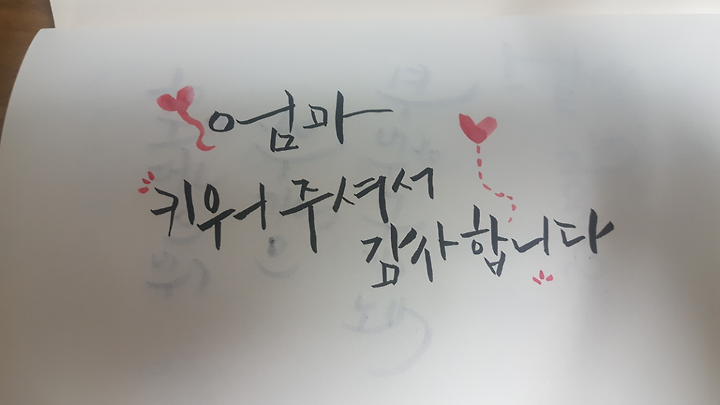 엄마
키워 주셔서
감사합니다